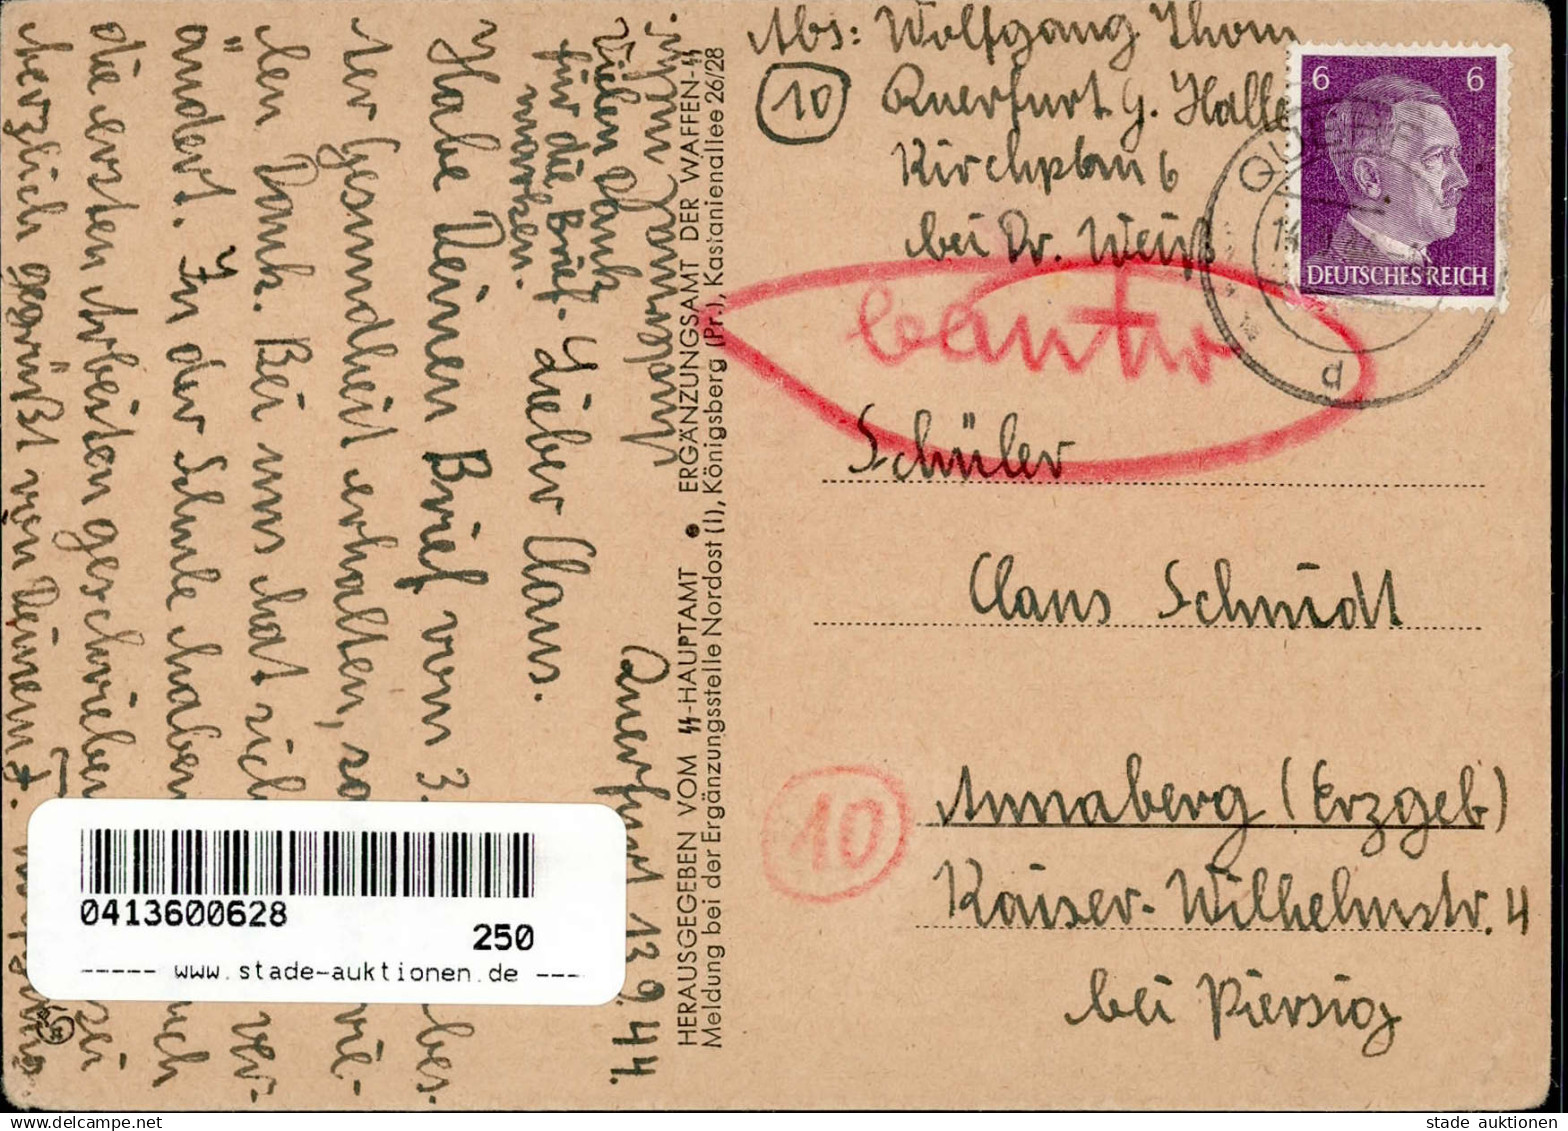 Abs: Wolfgang Thom
10 Querfurt g. Halle
Kirchplan 6
bei Dr. Weiß
6 6
DEUTSCHES REICH
QUERFURT
d
Schüler
Claus Schmidt
Annaberg (Erzgeb)
10
Kaiser-Wilhelmstr. 4
bei Piersig
HERAUSGEGEBEN VOM SS-HAUPTAMT • ERGÄNZUNGSAMT DER WAFFEN-SS
Meldung bei der Ergänzungsstelle Nordost (I), Königsberg (Pr.), Kastanienallee 26/28
Querfurt 13.9.44.
Lieber Claus.
Habe Deinen Brief vom 3. bes-
ter Gesundheit erhalten, vie-
len Dank. Bei uns hat sich ver-
ändert. In der Schule haben
die ersten Arbeiten geschrieben sei
herzlich gegrüßt von Deinem
Andermal mehr.
Vielen Dank
für die Brief-
marken.
0413600628
250
----- www.stade-auktionen.de ----
stade auktionen